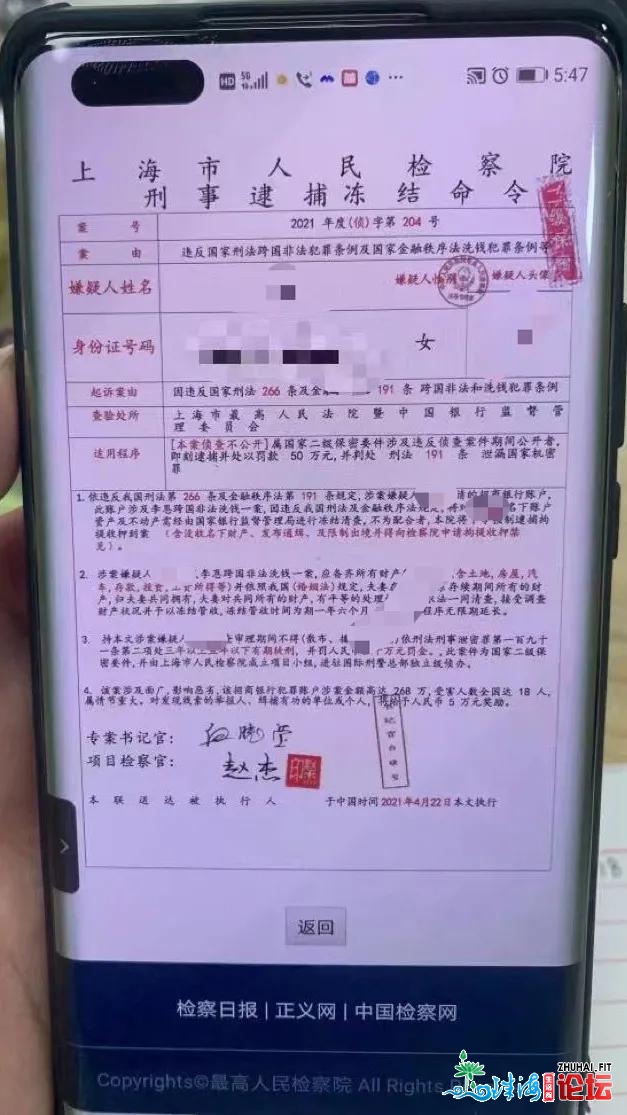 HD 5G 5:47
上海市人民检察院
刑事逮捕冻结命令
案号 2021 年度(侦)字第 204 号
案由 违反国家刑法跨国非法犯罪条例及国家金融秩序法洗钱犯罪条例等
嫌疑人姓名 嫌疑人性别 嫌疑人头像
身份证号码 女
起诉案由 因违反国家刑法 266 条及金 191 条 跨国非法和洗钱犯罪条例
查验处所 上海市最高人民法院暨中国银行监督管
理委员会
适用程序 [本案侦查不公开]属国家二级保密要件涉及违反侦查案件期间公开者,
即刻逮捕并处以罚款 50 万元,并判处 刑法 191 条 泄漏国家机密
罪
1. 依违反我国刑法第 266 条及金融秩序法第 191 条规定,涉案嫌疑人 清的招商银行账户,
此账户涉及李恩跨国非法洗钱一案,因违反我国刑法及金融秩序法规定,将对 名下账户
资产及不动产需经由国家银行监督管理局进行冻结清查,不为配合者,本院将 强制逮捕拘
提收押到案 (含没收名下财产、发布通缉、及限制出境并得向检察院申请拘提收押禁
见)。
2. 涉案嫌疑人 ,李恩跨国非法洗钱一案,应备齐所有财产 ,含土地,房屋,汽
车,存款,投资, 所得等)并依照我国(婚姻法)规定,夫妻 存续期间所有的财
产,归夫妻共同拥有,夫妻对共同所有的财产,有平等的处理 依法一同清查,接受调查
财产状况并予以冻结管收,冻结管收时间为期一年六个月 程序无限期延长。
3. 持本文涉案嫌疑人 上审理期间不得(散布、 依刑法刑事泄密罪第一百九十
一条第二项处三年以上五年以下有期徒刑,并罚人民币 万元罚金。,此案件为国家二级保
密要件,并由上海市人民检察院成立项目小组,进驻国际刑警总部独立级侦办。
4. 该案涉及面广,影响恶劣,该招商银行犯罪账户涉案金额高达 268 万,受害人数全国达 18 人,
属情节重大。对发现线索的举报人、缉捕有功的单位或个人, 将给予人民币 5 万元奖励。
专案书记官:
项目检察官: 赵杰
本联送达被执行人 于中国时间 2021年4月22日本文执行
返回
检察日报 | 正义网 | 中国检察网
Copyrights©最高人民检察院 All Rights
ZHUHAI.FIT
珠海 论坛